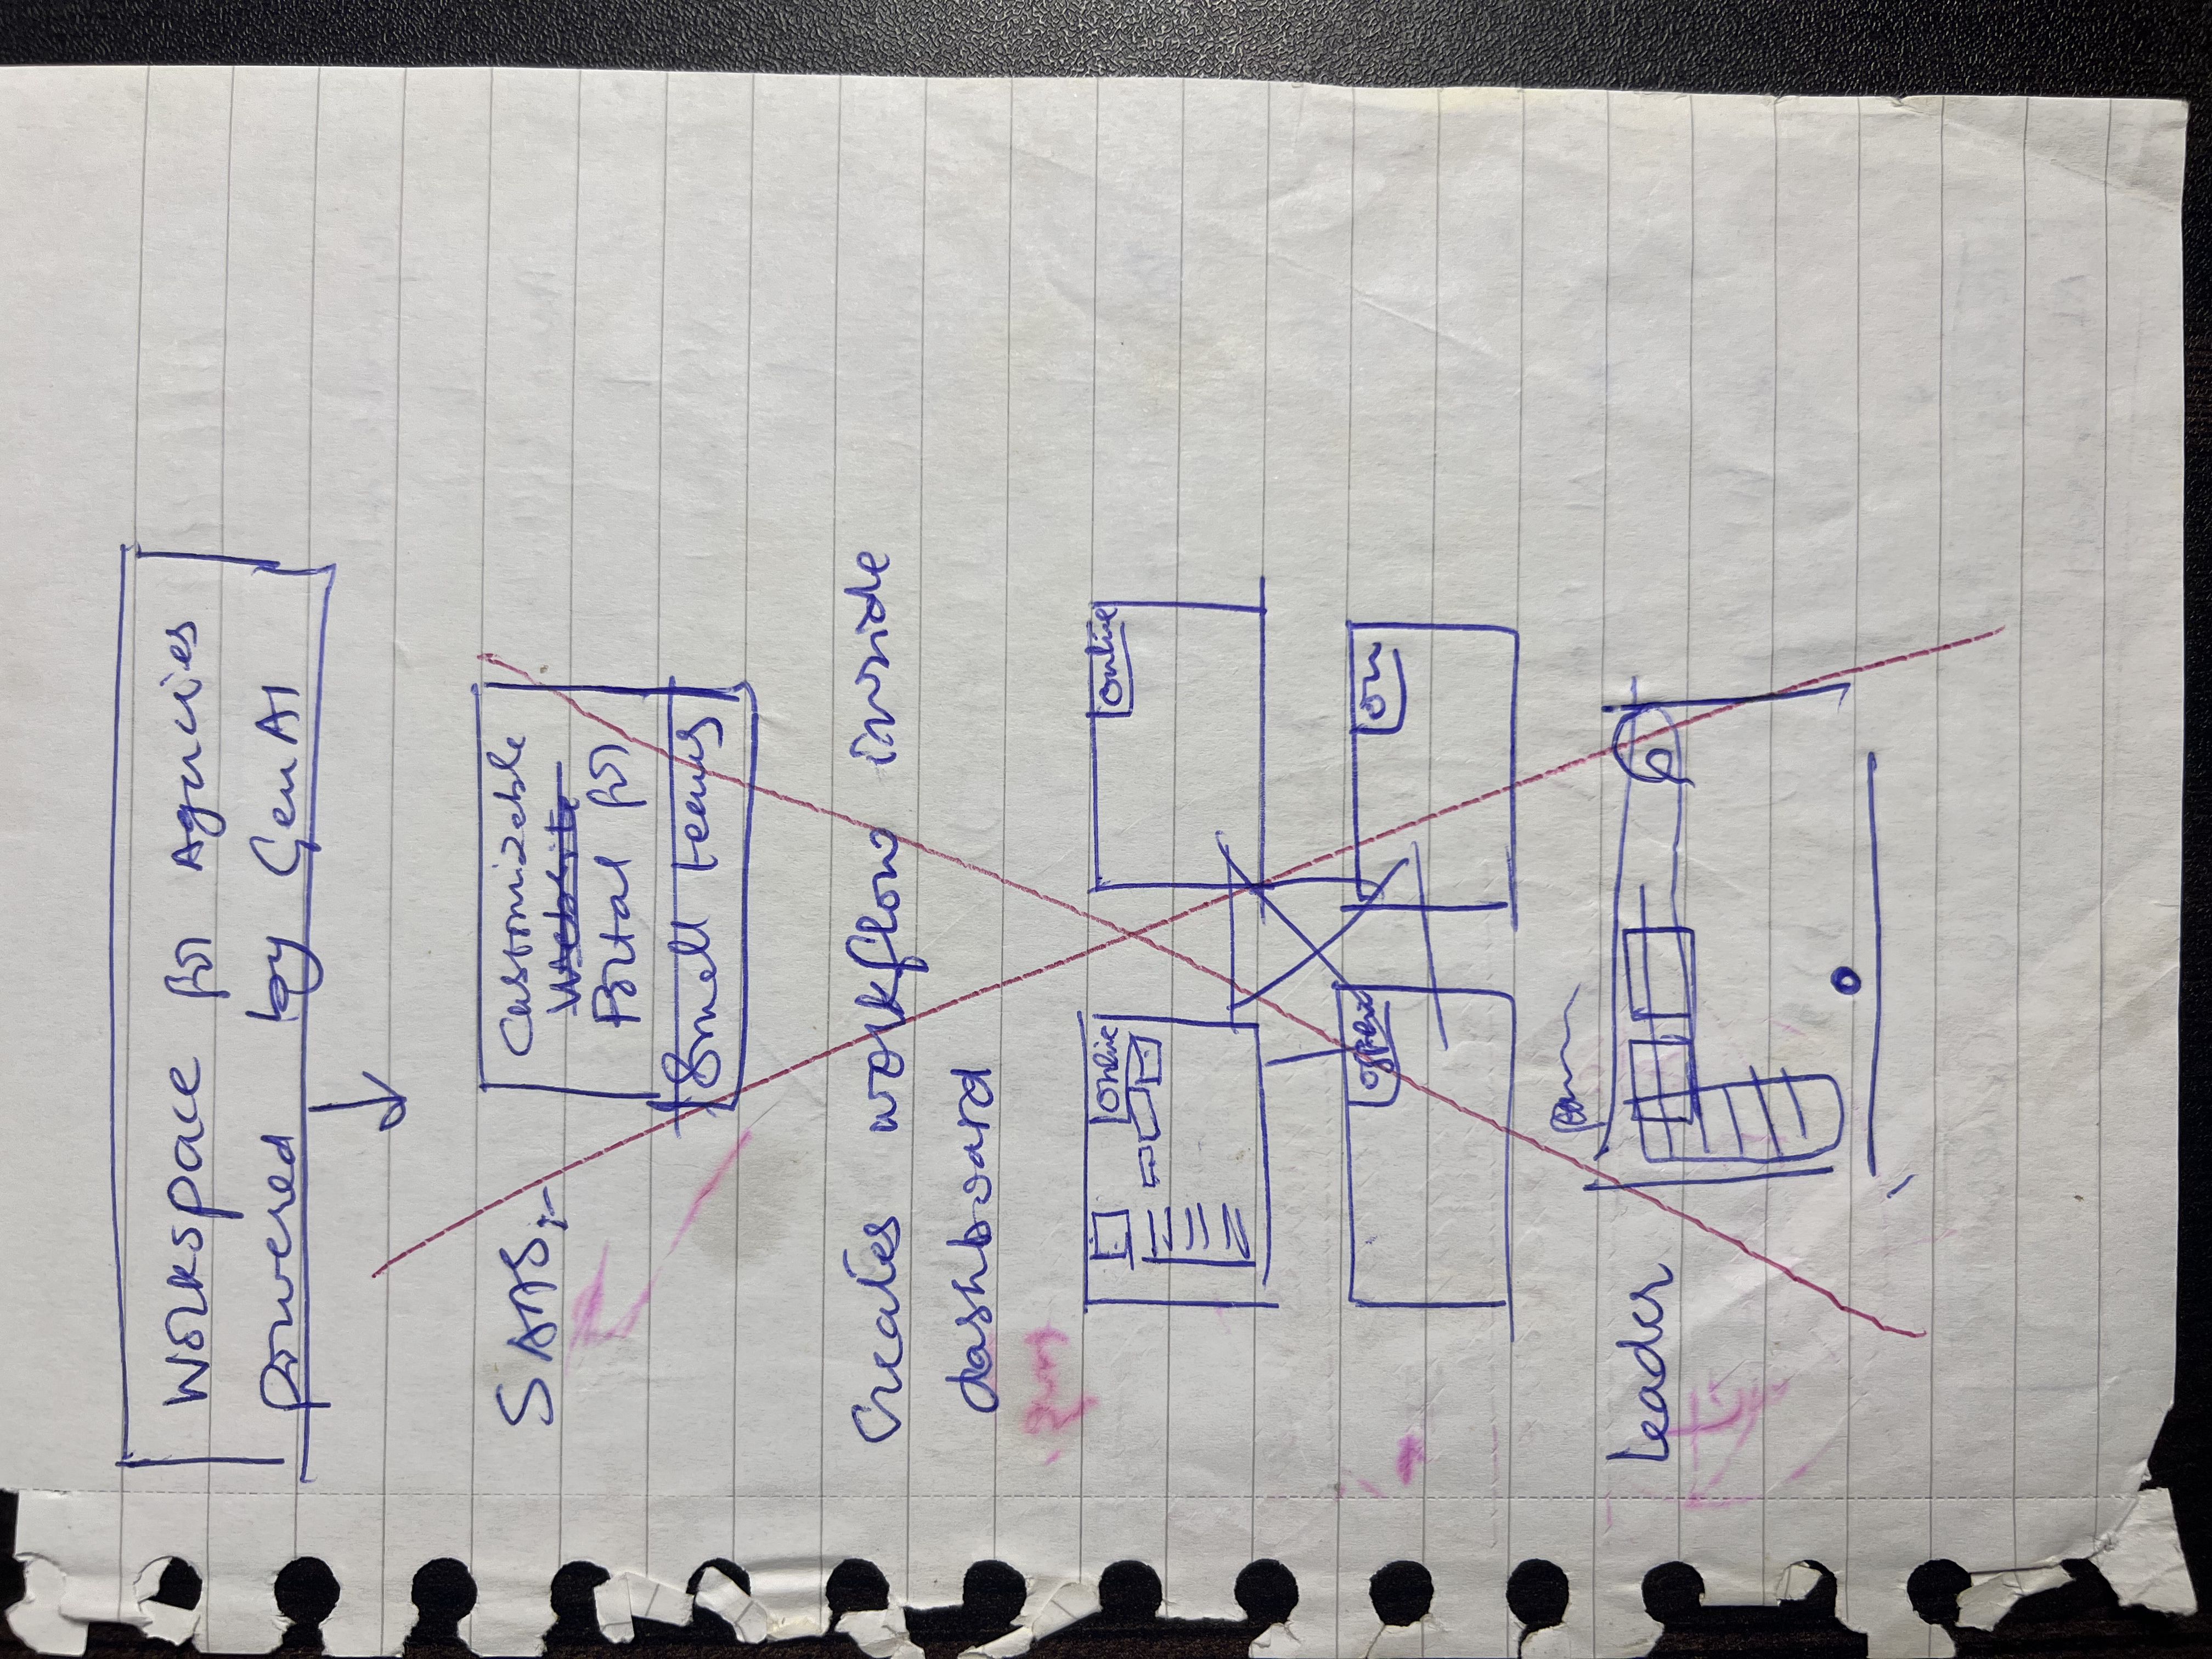 Workspace for Agencies
powered by GenAI
SAAS:-
Customizable
Website
Portal for
Small teams
Creates workflow inside
dashboard
Online
Online
Offline
On
Leader